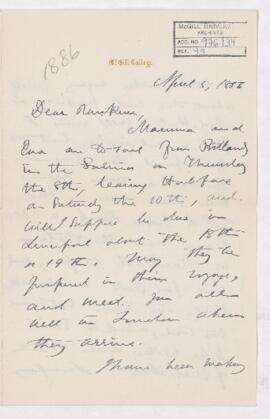 McGILL UNIVERSITY
ARCHIVES
ACC. NO. 976/34
REF. 49
1886
McGill College.
April 5, 1886
Dear Rankine,
Mamma and
Eva are to sail from Portland
in the Sardinian on Thursday
the 8th, leaving Halifax
on Saturday the 10th, and
will I suppose be due in
Liverpool about the 18th
or 19th. May they be
prospered in their voyage,
and meet you all
well in London when
they arrive.
I have been making